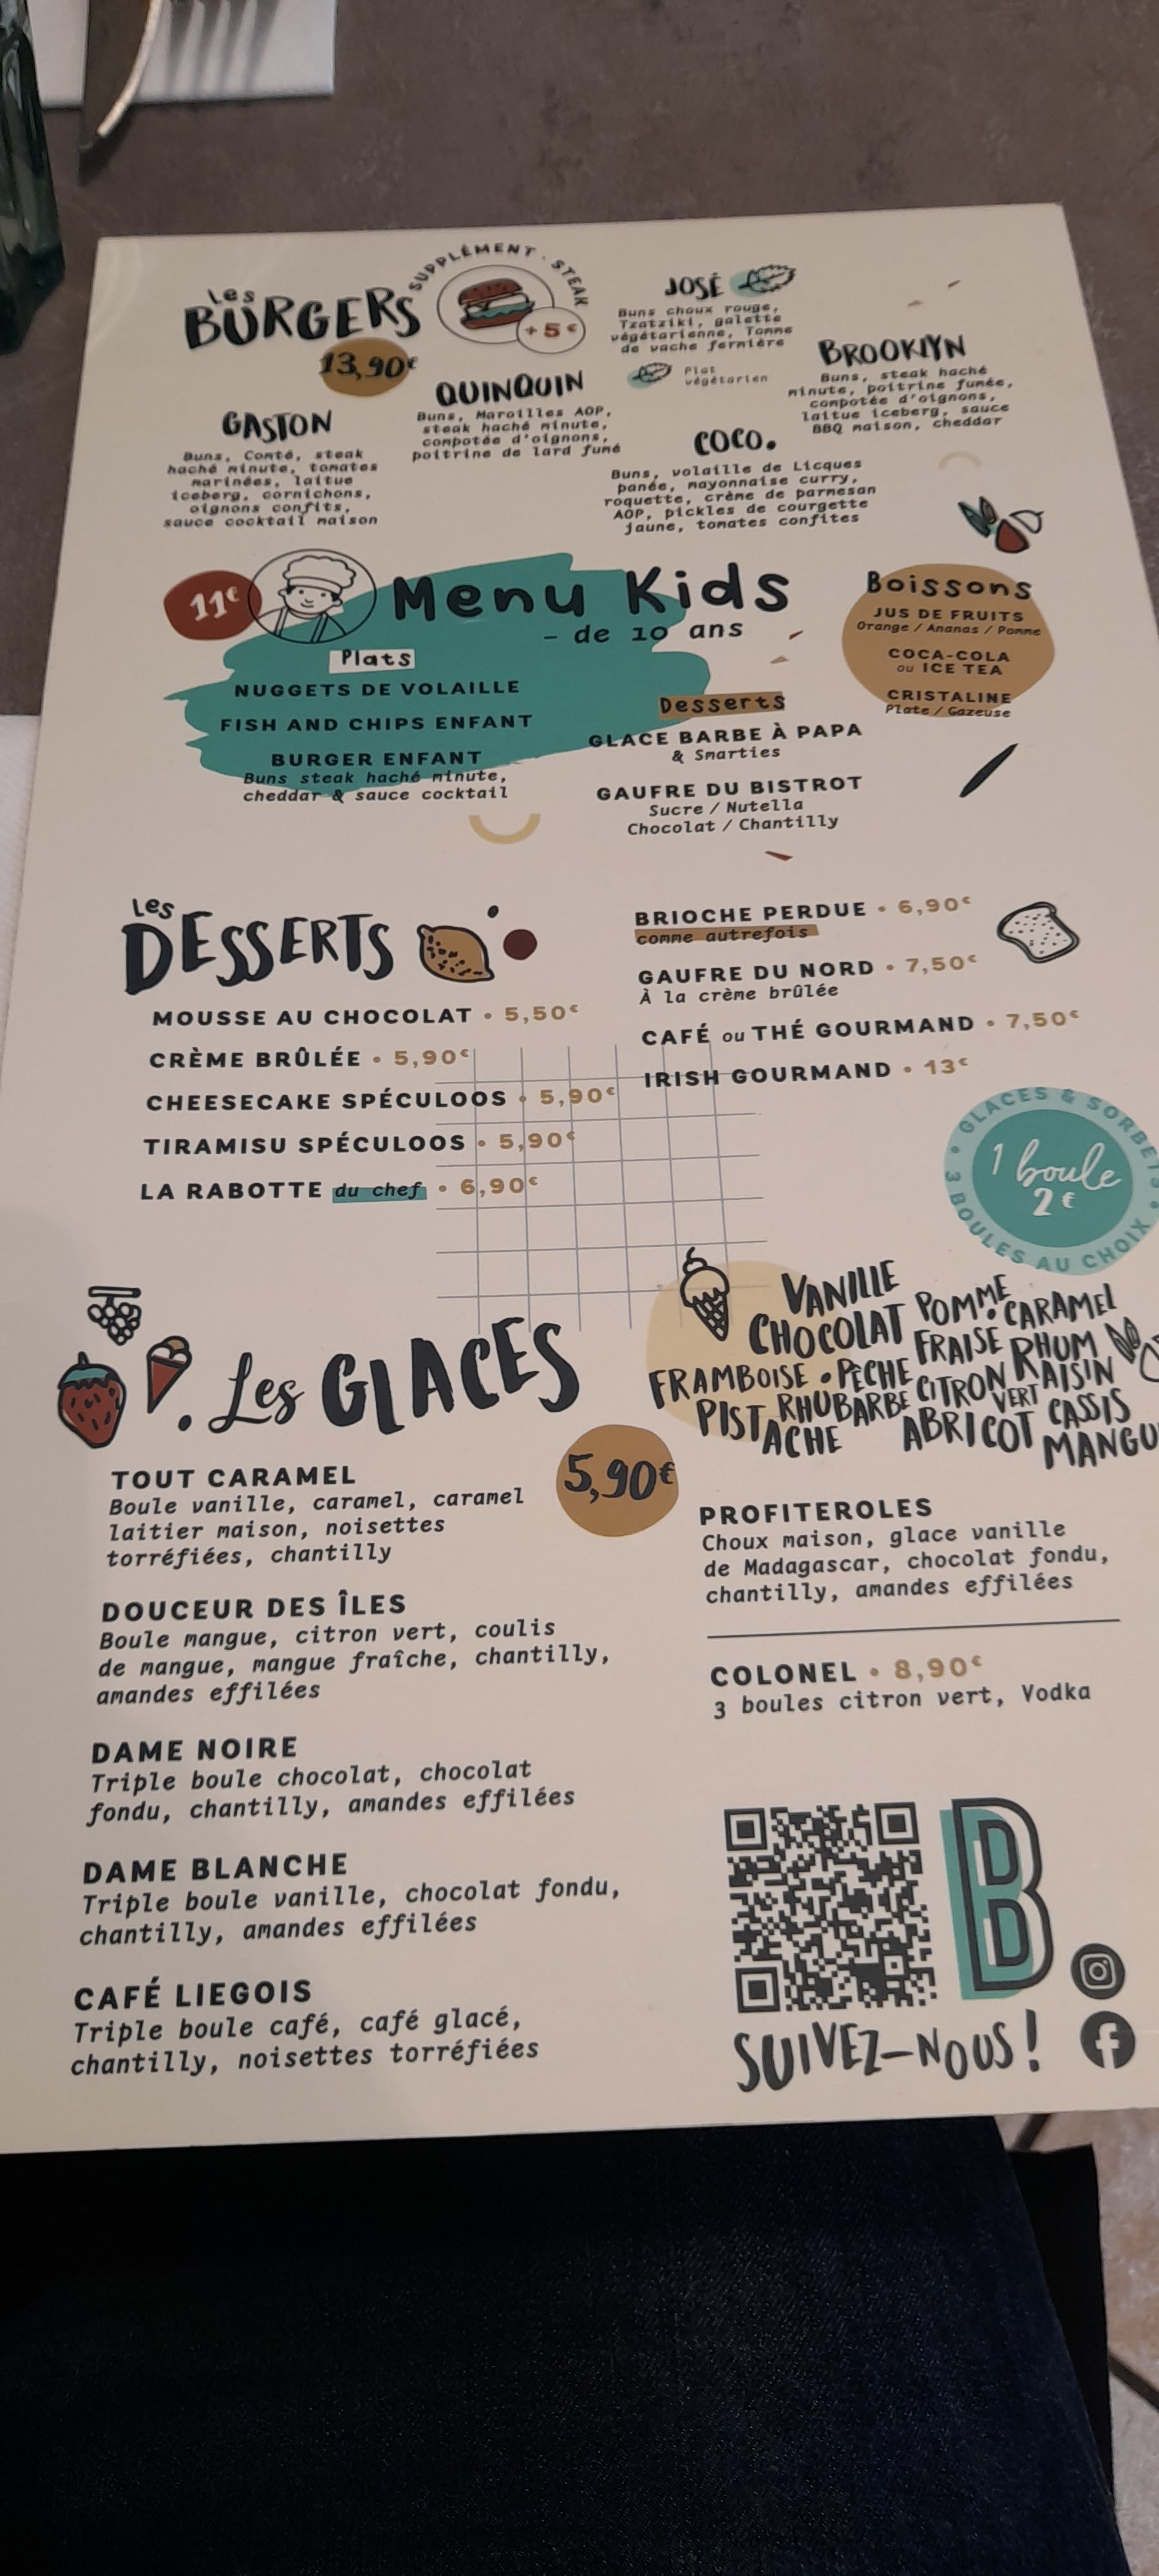 Les
BURGERS
13,90€
SUPPLÉMENT · STEAK
+5€
GASTON
Buns, Comté, steak
haché minute, tomates
marinées, laitue
iceberg, cornichons,
oignons confits,
sauce cocktail maison
QUINQUIN
Buns, Maroilles AOP,
steak haché minute,
compotée d'oignons,
poitrine de lard fumé
JOSÉ
Buns choux rouge,
Tzatziki, galette
végétarienne, Tomme
de vache fermière
Plat
végétarien
BROOKLYN
Buns, steak haché
minute, poitrine fumée,
compotée d'oignons,
laitue iceberg, sauce
BBQ maison, cheddar
COCO.
Buns, volaille de Licques
panée, mayonnaise curry,
roquette, crème de parmesan
AOP, pickles de courgette
jaune, tomates confites
11€
Menu Kids
- de 10 ans
Plats
NUGGETS DE VOLAILLE
FISH AND CHIPS ENFANT
BURGER ENFANT
Buns steak haché minute,
cheddar & sauce cocktail
Desserts
GLACE BARBE À PAPA
& Smarties
GAUFRE DU BISTROT
Sucre / Nutella
Chocolat / Chantilly
Boissons
JUS DE FRUITS
Orange / Ananas / Pomme
COCA-COLA
ou ICE TEA
CRISTALINE
Plate / Gazeuse
Les
DESSERTS
MOUSSE AU CHOCOLAT • 5,50€
CRÈME BRÛLÉE • 5,90€
CHEESECAKE SPÉCULOOS • 5,90€
TIRAMISU SPÉCULOOS • 5,90€
LA RABOTTE du chef • 6,90€
BRIOCHE PERDUE • 6,90€
comme autrefois
GAUFRE DU NORD • 7,50€
À la crème brûlée
CAFÉ ou THÉ GOURMAND • 7,50€
IRISH GOURMAND • 13€
• GLACES & SORBETS •
3 BOULES AU CHOIX
1 boule
2€
Les GLACES
VANILLE
CHOCOLAT
POMME
CARAMEL
FRAMBOISE • PÊCHE
FRAISE
RHUM
RAISIN
PISTACHE
RHUBARBE
CITRON
VERT
ABRICOT
CASSIS
MANGU
5,90€
TOUT CARAMEL
Boule vanille, caramel, caramel
laitier maison, noisettes
torréfiées, chantilly
DOUCEUR DES ÎLES
Boule mangue, citron vert, coulis
de mangue, mangue fraîche, chantilly,
amandes effilées
DAME NOIRE
Triple boule chocolat, chocolat
fondu, chantilly, amandes effilées
DAME BLANCHE
Triple boule vanille, chocolat fondu,
chantilly, amandes effilées
CAFÉ LIEGOIS
Triple boule café, café glacé,
chantilly, noisettes torréfiées
PROFITEROLES
Choux maison, glace vanille
de Madagascar, chocolat fondu,
chantilly, amandes effilées
COLONEL • 8,90€
3 boules citron vert, Vodka
B
SUIVEZ-NOUS !